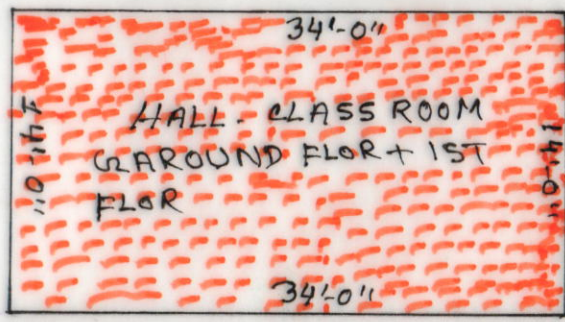 34'-0"
HALL. CLASS ROOM
GAROUND FLOR + IST
FLOR
14'-0"
14'-0"
34'-0"